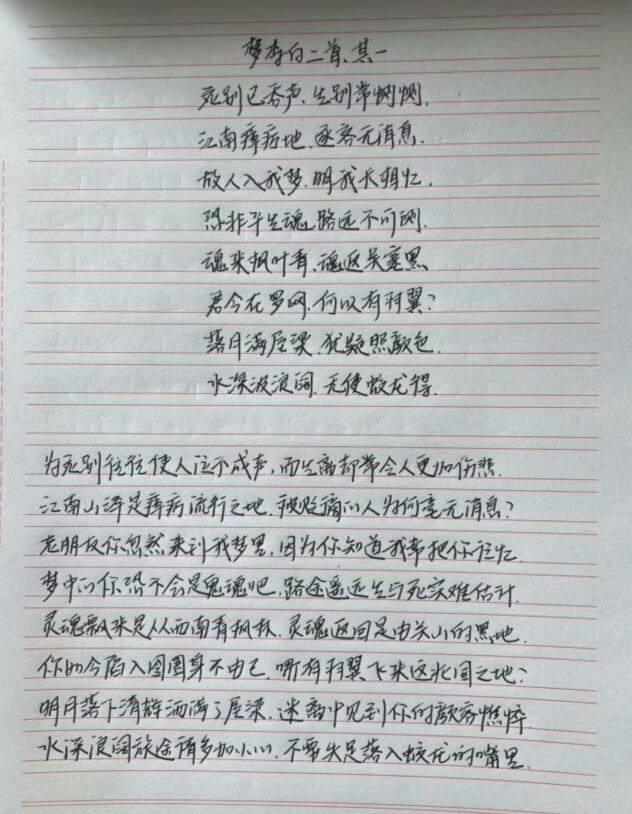 梦李白二首、其一
死别已吞声、生别常恻恻.
江南瘴疠地、逐客无消息.
故人入我梦、明我长相忆.
恐非平生魂、路远不可测.
魂来枫叶青、魂返关塞黑
君今在罗网、何以有羽翼?
落月满屋梁、犹疑照颜色.
水深波浪阔、无使蛟龙得.
为死别往往使人泣不成声,而生离却常令人更加伤悲.
江南山泽是瘴疠流行之地.被贬谪的人为何毫无消息?
老朋友你忽然来到我梦里,因为你知道我常把你记忆.
梦中的你恐不会是鬼魂吧,路途遥远生与死实难估计.
灵魂飘来是从西南青枫林,灵魂返回是由关山的黑地.
你如今陷入囹圄身不由己.哪有羽翼飞来这北国之地?
明月落下清辉洒满了屋梁.迷离中见到你的颜容憔悴.
水深浪阔旅途请多加小心.不要失足落入蛟龙的嘴里.